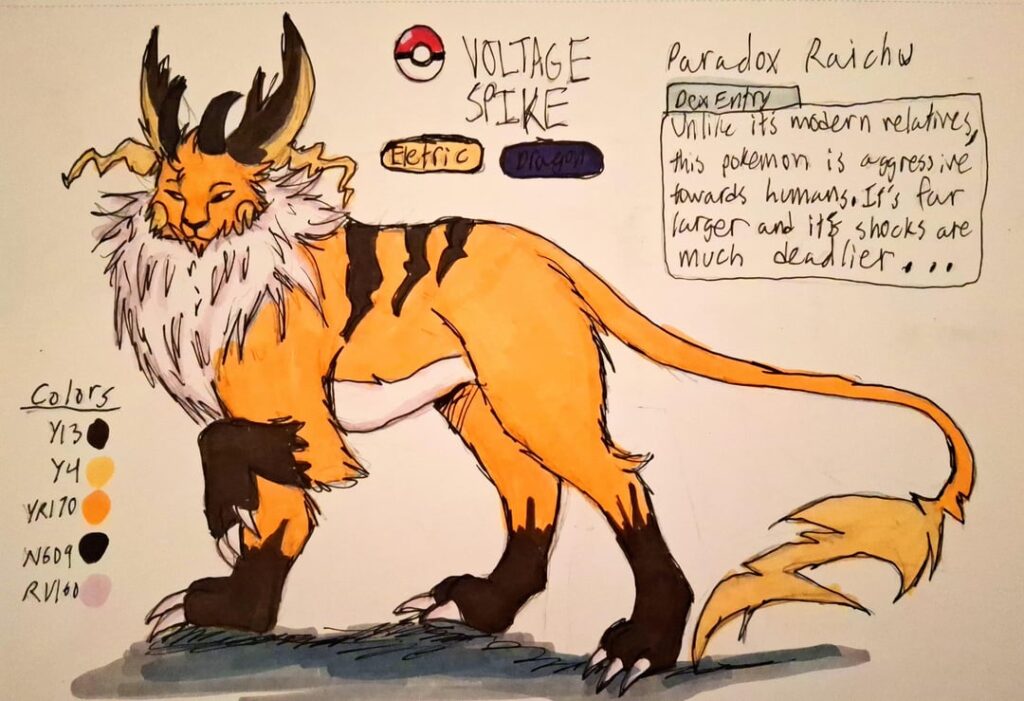 VOLTAGE
SPIKE
Eletric
Dragon
Paradox Raichu
Dex Entry
Unlike it's modern relatives,
this pokemon is aggressive
towards humans. It's far
larger and it's shocks are
much deadlier....
Colors
Y13
Y4
YR170
NG09
RV160